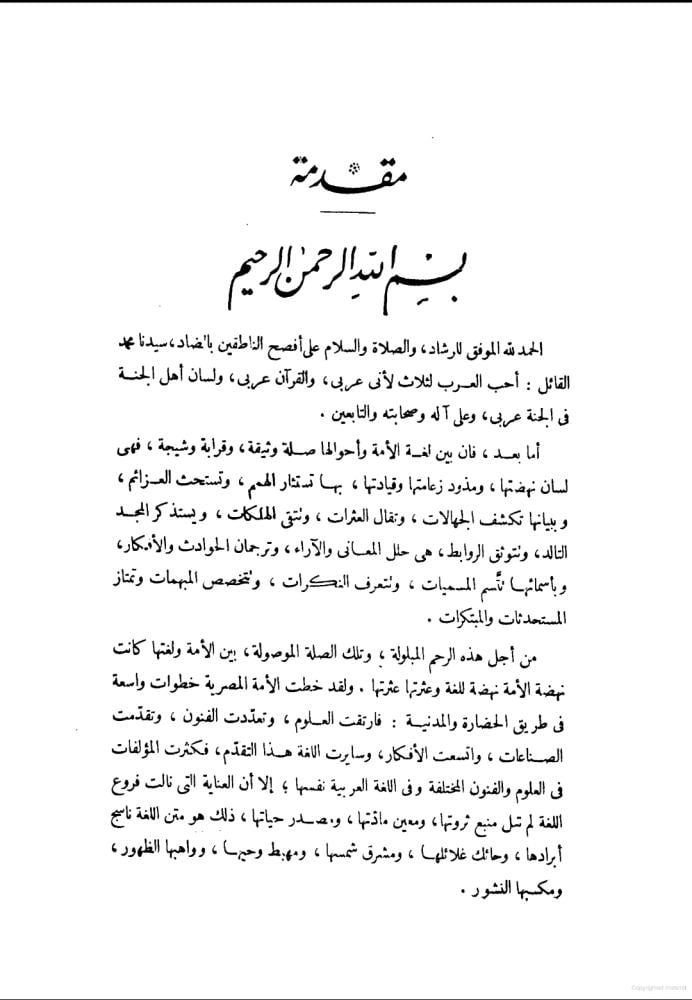 مقدمة
بسم الله الرحمن الرحيم
الحمد لله الموفق للرشاد، والصلاة والسلام على أفصح الناطقين بالضاد، سيدنا محمد
القائل : أحب العرب لثلاث لأنى عربى، والقرآن عربى، ولسان أهل الجنة
فى الجنة عربى، وعلى آله وصحابته والتابعين .
أما بعد ، فان بين لغة الأمة وأحوالها صلة وثيقة، وقرابة وشيجة ، فهى
لسان نهضتها ، ومذود زعامتها وقيادتها ، بها تستثار الهمم ، وتستحث العزائم ،
وببيانها تكشف الجهالات ، وتقال العثرات ، وتتقى الهلكات ، ويستذكر المجد
التالد، وتتوثق الروابط، هى حلل المعانى والآراء، وترجمان الحوادث والأفكار،
وبأسمائها تتَّسم المسميات ، وتتعرف النكرات ، وتتخصص المبهمات وتمتاز
المستحدثات والمبتكرات .
من أجل هذه الرحم المبلولة ؛ وتلك الصلة الموصولة، بين الأمة ولغتها كانت
نهضة الأمة نهضة للغة وعثرتها عثرتها . ولقد خطت الأمة المصرية خطوات واسعة
فى طريق الحضارة والمدنية : فارتقت العلوم ، وتعدّدت الفنون ، وتقدّمت
الصناعات ، واتسعت الأفكار، وسايرت اللغة هذا التقدّم، فكثرت المؤلفات
فى العلوم والفنون المختلفة وفى اللغة العربية نفسها ؛ إلا أن العناية التى نالت فروع
اللغة لم تنل منبع ثروتها، ومعين مادّتها ، ومصدر حياتها ، ذلك هو متن اللغة ناسج
أبرادها ، وحائك غلائلها ، ومشرق شمسها ، ومهبط وحيها ، وواهبها الظهور ،
ومكسبها النشور .
Copyrighted material